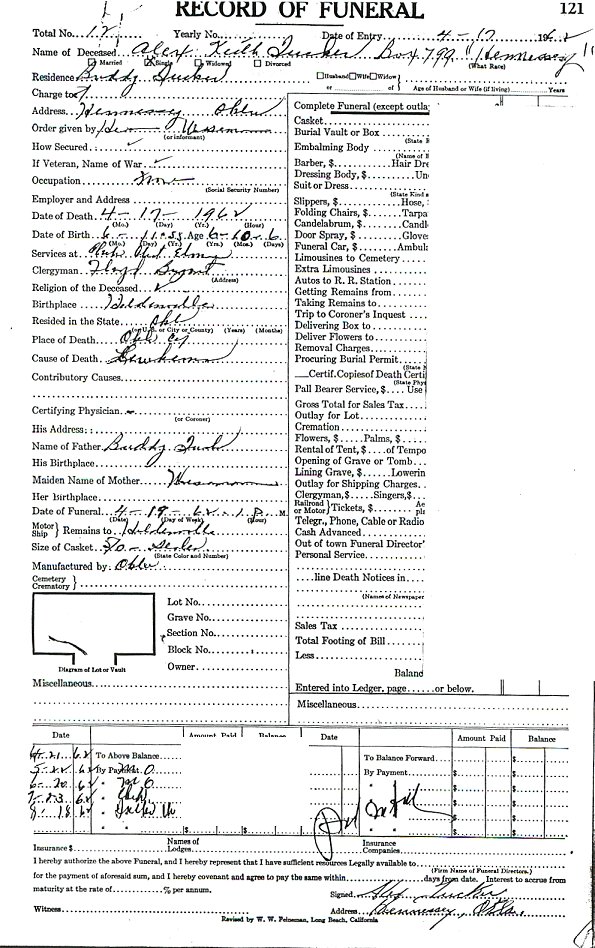 RECORD OF FUNERAL 121
Total No. 12 Yearly No. Date of Entry 4-17 1962
Name of Deceased Alex Keith Tucker Box 799 "Hennessey"
Married Single Widowed Divorced (What Race)
Residence Buddy Tucker Husband Wife Widow
or of Age of Husband or Wife (if living) Years
Charge to
Address Hennessey Okla
Order given by
(or informant)
How Secured
If Veteran, Name of War
Occupation
(Social Security Number)
Employer and Address
Date of Death 4-17-1962
(Mo.) (Day) (Yr.) (Hour)
Date of Birth 6-11-55 Age 6-10-6
(Mo.) (Day) (Yr.) (Yrs.) (Mos.) (Days)
Services at
Clergyman Floyd
(Address)
Religion of the Deceased
Birthplace Holdenville
Resided in the State Okla
(or U.S. or City or County) (Years) (Months)
Place of Death Okla Cy
Cause of Death
Contributory Causes
Certifying Physician
(or Coroner)
His Address
Name of Father Buddy
His Birthplace
Maiden Name of Mother
Her Birthplace
Date of Funeral 4-19-62 1 P. M.
(Date) (Day of Week) (Hour)
Motor Ship } Remains to Holdenville
Size of Casket 5/0
(State Color and Number)
Manufactured by: Okla
Cemetery
Crematory }
Lot No.
Grave No.
Section No.
Block No.
Owner
Diagram of Lot or Vault
Miscellaneous
Complete Funeral (except outla
Casket
Burial Vault or Box
(State B
Embalming Body
(Name of B
Barber, $ Hair Dre
Dressing Body, $ Un
Suit or Dress
(State Kind a
Slippers, $ Hose,
Folding Chairs, $ Tarpa
Candelabrum, $ Candl
Door Spray, $ Glove
Funeral Car, $ Ambul
Limousines to Cemetery
Extra Limousines
Autos to R. R. Station
Getting Remains from
Taking Remains to
Trip to Coroner's Inquest
Delivering Box to
Deliver Flowers to
Removal Charges
Procuring Burial Permit
(State B
Certif. Copies of Death Certi
(State Phy
Pall Bearer Service, $ Use
Gross Total for Sales Tax
Outlay for Lot
Cremation
Flowers, $ Palms, $
Rental of Tent, $ of Tempo
Opening of Grave or Tomb
Lining Grave, $ Lowerin
Outlay for Shipping Charges
Clergyman, $ Singers, $
Railroad or Motor } Tickets, $ Ae pl
Telegr., Phone, Cable or Radio
Cash Advanced
Out of town Funeral Director'
Personal Service
line Death Notices in
(Names of Newspaper
Sales Tax
Total Footing of Bill
Less
Balanc
Entered into Ledger, page or below.
Miscellaneous
Date Amount Paid Balance Date Amount Paid Balance
4-21 62 To Above Balance To Balance Forward
5-22 62 By Payment M O By Payment
6-20 62 " M O
7-23 62 "
8-18 62 "
Pd in full
Insurance $ Names of Lodges Insurance Companies
I hereby authorize the above Funeral, and I hereby represent that I have sufficient resources legally available to
(Firm Name of Funeral Directors.)
for the payment of aforesaid sum, and I hereby covenant and agree to pay the same within days from date. Interest to accrue from
maturity at the rate of % per annum. Signed Tucker
Witness Address Hennessey, Okla.
Revised by W. W. Feineman, Long Beach, California